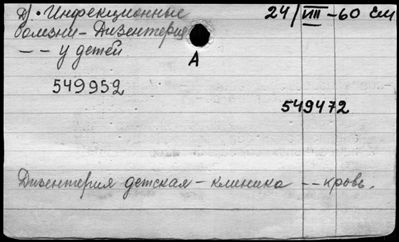 Д. Инфекционные 24/VIII-60 см
болезни - Дизентерия
- - у детей
А
549952
549472
Дизентерия детская - клиника - - кровь.